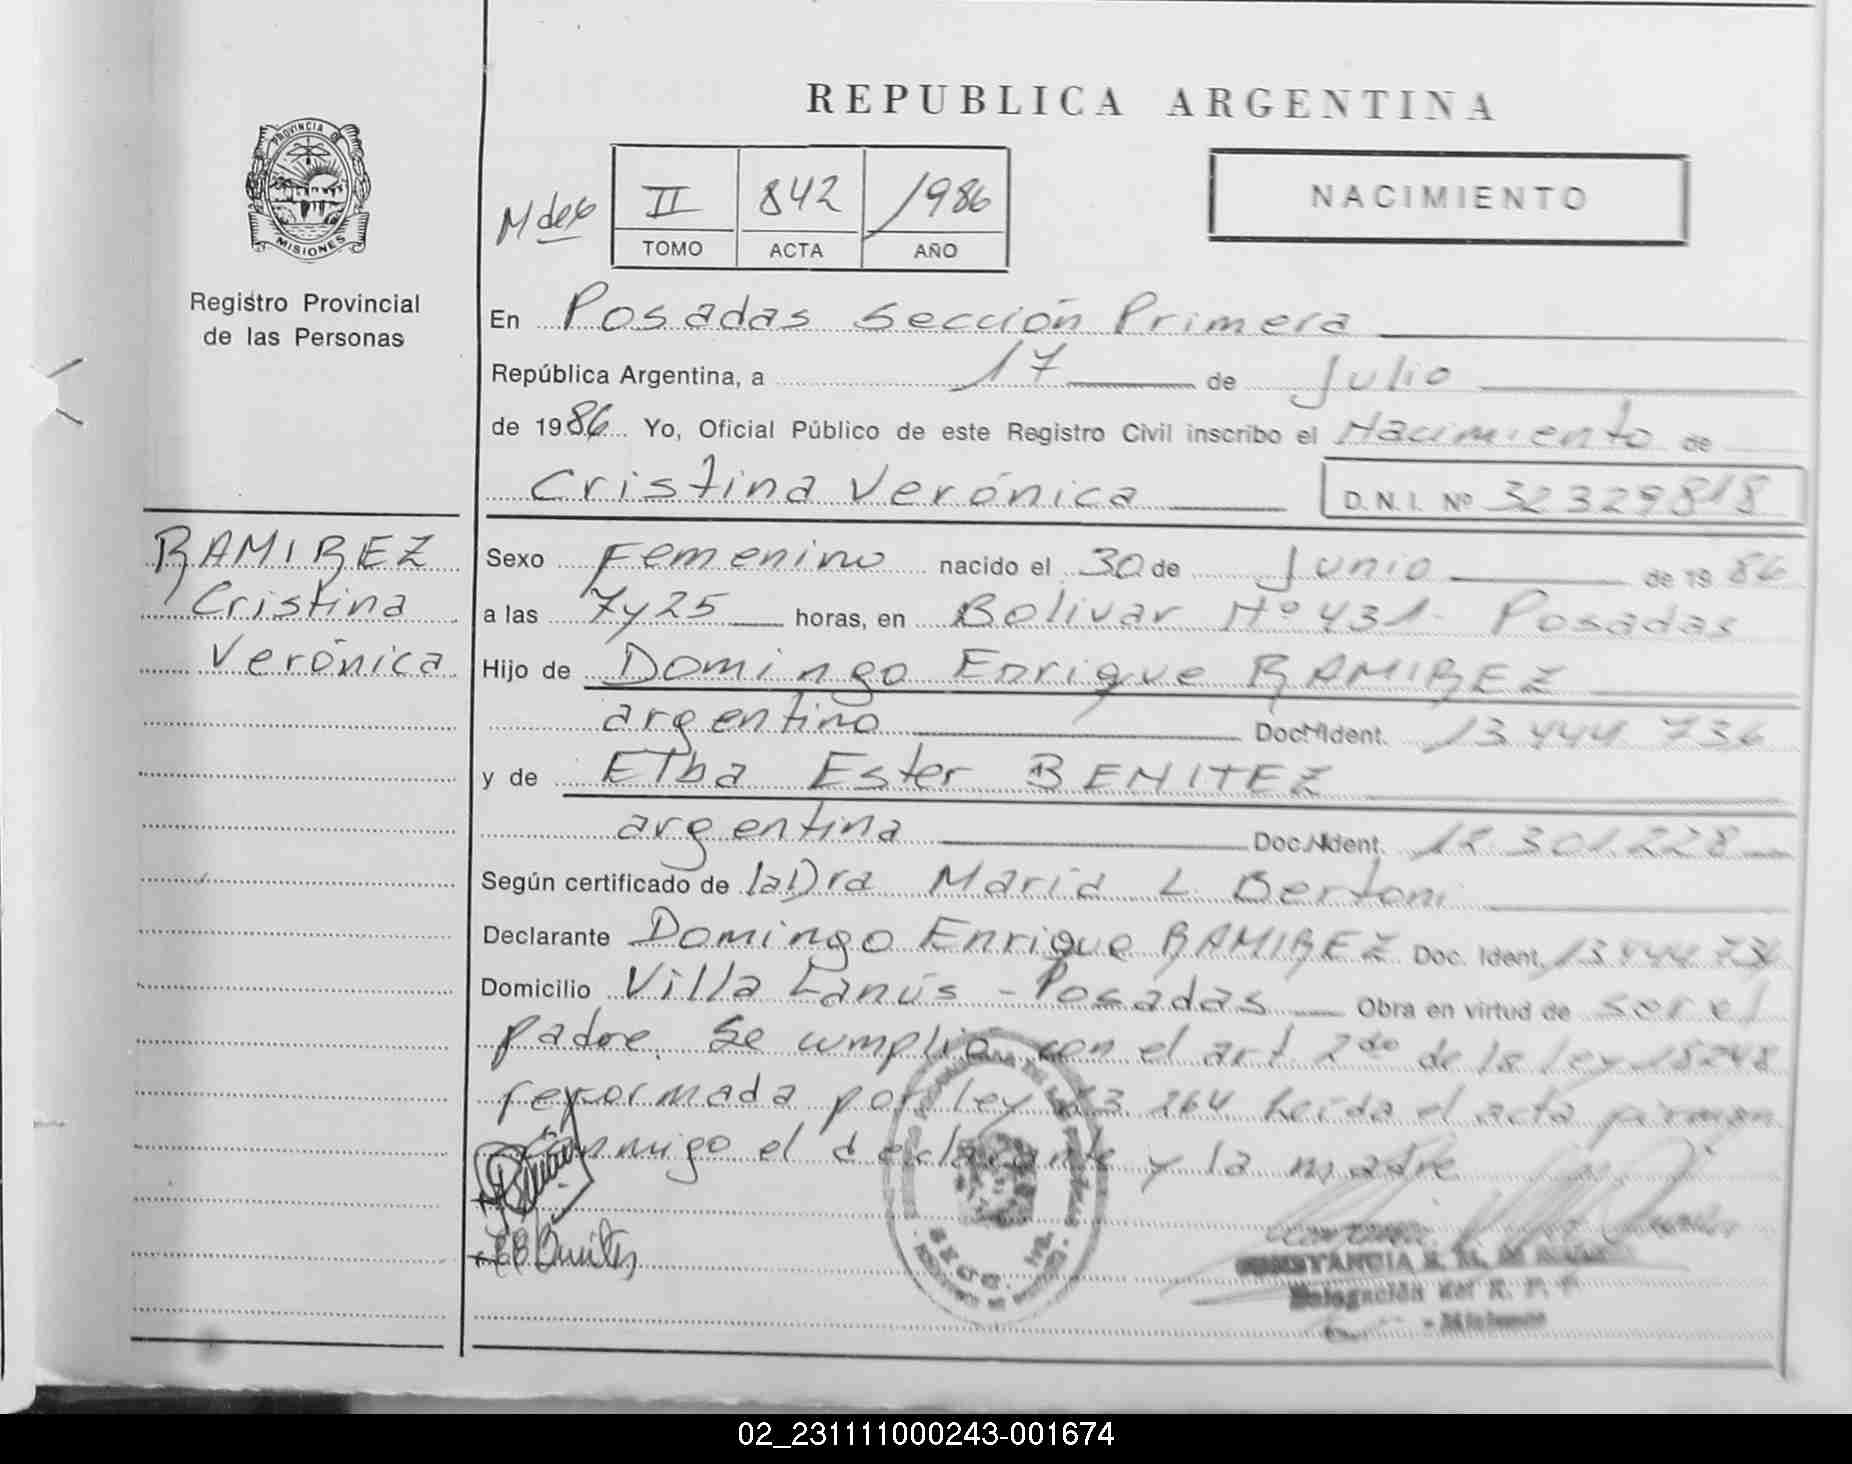 REPUBLICA ARGENTINA
PROVINCIA DE
MISIONES
Registro Provincial
de las Personas
II 842 1986
TOMO ACTA AÑO
NACIMIENTO
En Posadas Sección Primera
República Argentina, a 17 de Julio
de 1986 Yo, Oficial Público de este Registro Civil inscribo el Nacimiento de
Cristina Verónica D.N.I. Nº 32329818
RAMIREZ
Cristina
Verónica
Sexo Femenino nacido el 30 de Junio de 19 86
a las 7 y 25 horas, en Bolivar Nº 431- Posadas
Hijo de Domingo Enrique RAMIREZ
argentino Doc. Ident. 13.444.736
y de Elba Ester BENITEZ
argentina Doc. Ident. 12.301.228
Según certificado de la Dra Maria L Bertoni
Declarante Domingo Enrique RAMIREZ Doc. Ident. 13.444.736
Domicilio Villa Lanús - Posadas Obra en virtud de ser el
padre. Se cumplió con el art. 2do de la ley 18248
reformada por ley 23.264 leída el acta firman
conmigo el declarante y la madre
E B Benitez
CONSTANCIA
Delegación del R. P. P.
- Misiones
02_231111000243-001674